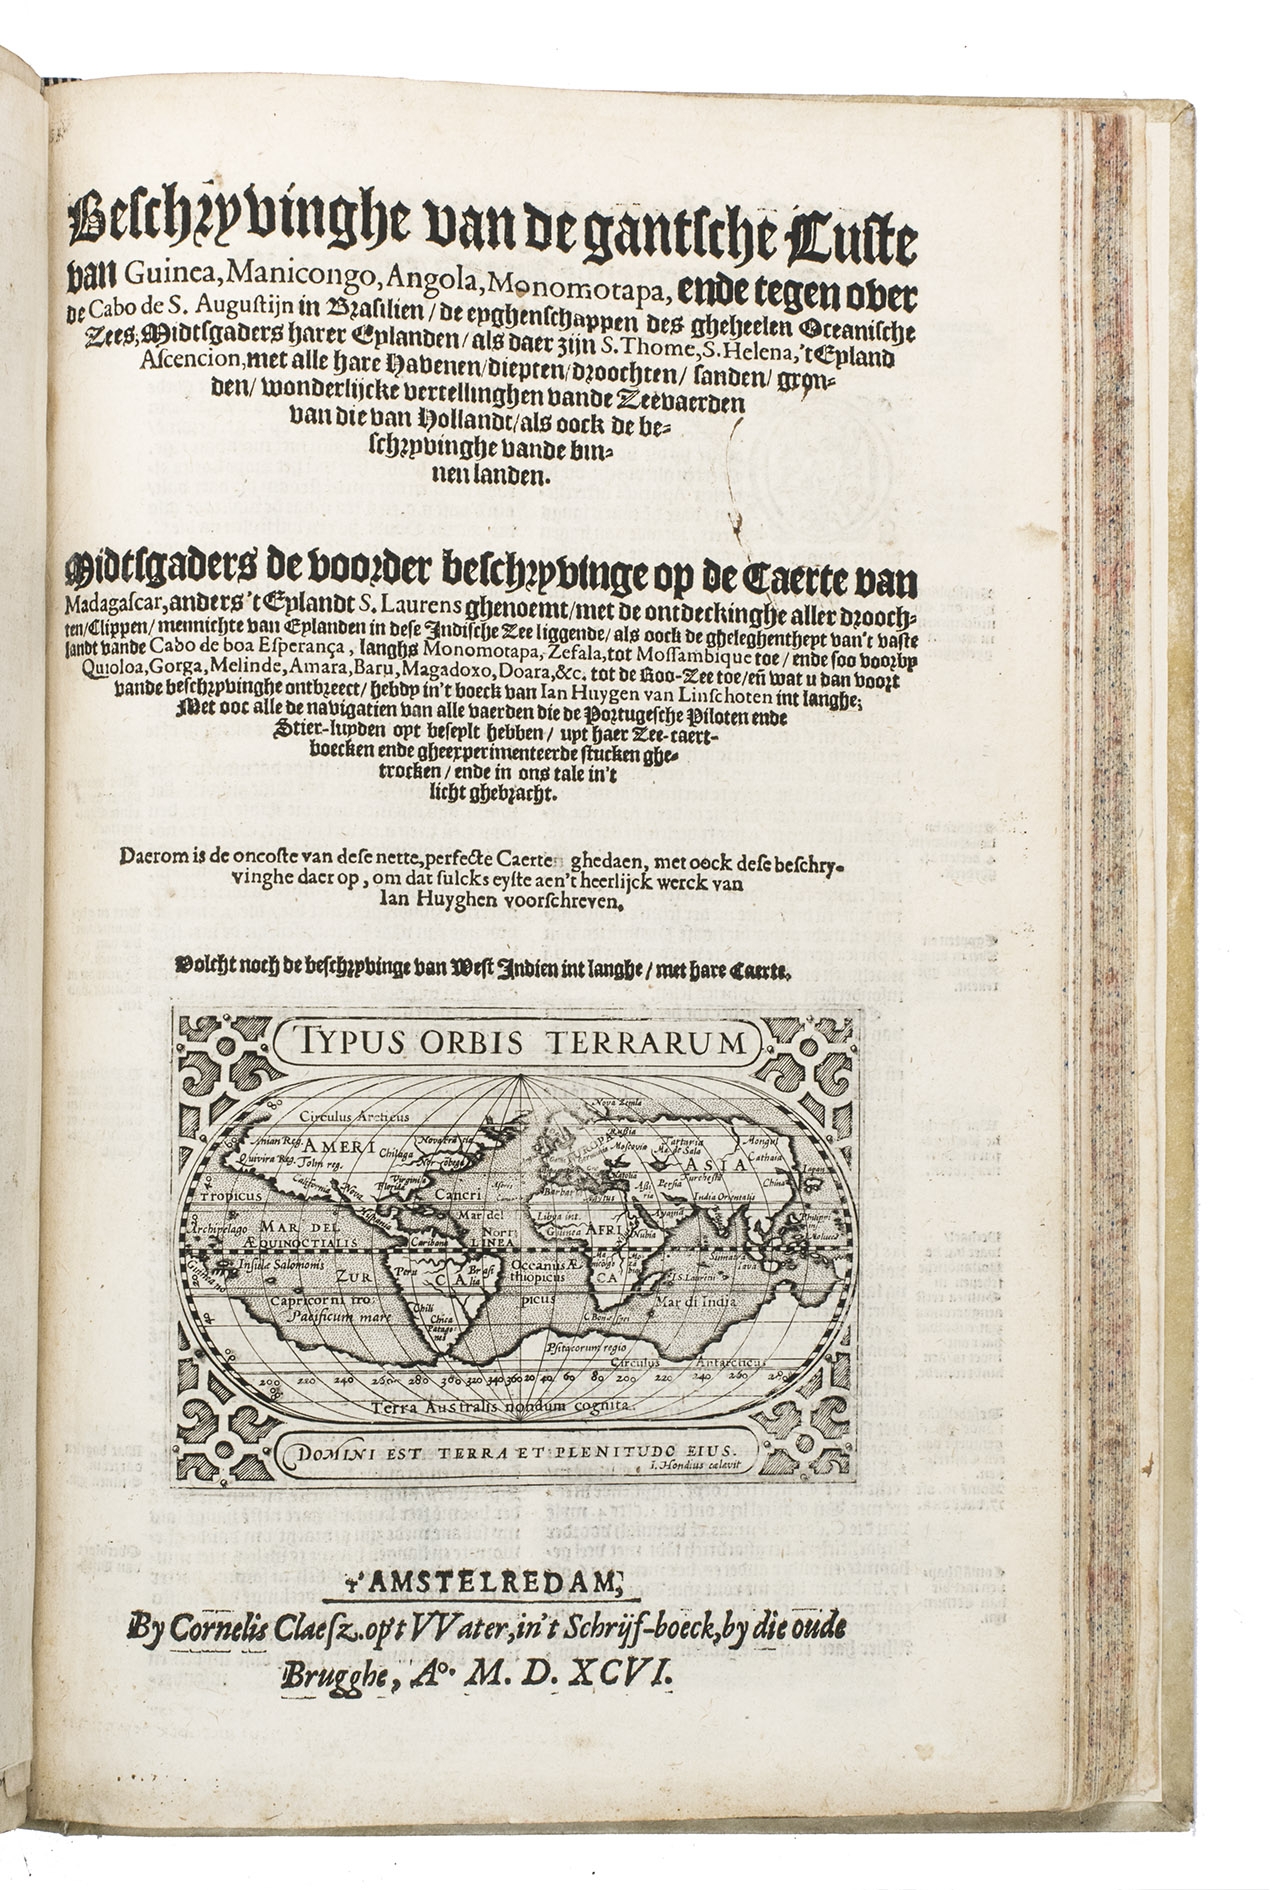 Beschryvinghe van de gantsche Custe
van Guinea, Manicongo, Angola, Monomotapa, ende tegen over
de Cabo de S. Augustijn in Brasilien / de eyghenschappen des gheheelen Oceanische
Zees; Midtsgaders harer Eylanden / als daer zijn S. Thome, S. Helena, 't Eyland
Ascencion, met alle hare Havenen / diepten / droochten / sanden / gron-
den / wonderlijcke vertellinghen vande Zeevaerden
van die van Hollandt / als oock de be-
schryvinghe vande bin-
nen landen.
Midtsgaders de voorder beschryvinge op de Caerte van
Madagascar, anders 't Eylandt S. Laurens ghenoemt / met de ontdeckinghe aller drooch-
ten / Clippen / mennichte van Eylanden in dese Indische Zee liggende / als oock de gheleghentheyt van't vaste
landt vande Cabo de boa Esperança, langhs Monomotapa, Zefala, tot Mossambique toe / ende soo voorby
Quioloa, Gorga, Melinde, Amara, Baru, Magadoxo, Doara, &c. tot de Roo-Zee toe / eñ wat u dan voort
vande beschryvinghe ontbreect / hebdy in't boeck van Ian Huygen van Linschoten int langhe;
Met ooc alle de navigatien van alle vaerden die de Portugesche Piloten ende
Stier-luyden oyt beseylt hebben / uyt haer Zee-caert-
boecken ende gheexperimenteerde stucken ghe-
trocken / ende in ons tale in't
licht ghebracht.
Daerom is de oncoste van dese nette, perfecte Caerten ghedaen, met oock dese beschry-
vinghe daer op, om dat sulcks eyste aen't heerlijck werck van
Ian Huyghen voorschreven.
Volcht noch de beschryvinge van West Indien int langhe / met hare Caerte.
TYPUS ORBIS TERRARUM
Nova Zemla
Circulus Arcticus
Anian Reg. AMERI Chilaga Nova Francia
Quivira Reg. Tolm reg. Norōbega
EUROPA Russia Moscovia Tartaria Mongul
ASIA Cathaia
California Nova Hispania Florida Virginia
Natolia Persia India Orientalis China Iapan
Tropicus Cancri
Barbaria
Archipelago MAR DEL Mar del Nort
Libya int. Guinea AFRI Nubia Ayaman
Philippin Moluccæ
ÆQUINOCTIALIS LINEA
Caribana
Insulæ Salomonis ZUR Peru CA Brasilia Oceanus Æthiopicus
CA Sumatra Iava
S. Laurentij
Capricorni tropicus
Pacificum mare Chili Chica Patagones
C. Bonæ spei Mar di India
Psitacorum regio
Circulus Antarcticus
200 220 240 260 280 300 320 340 360 20 40 60 80 200 220 240 260 280
Terra Australis nondum cognita.
DOMINI EST TERRA ET PLENITUDO EIUS.
I. Hondius cælavit
t'AMSTELREDAM,
By Cornelis Claesz. op't VVater, in't Schrijf-boeck, by die oude
Brugghe, Aº. M. D. XCVI.